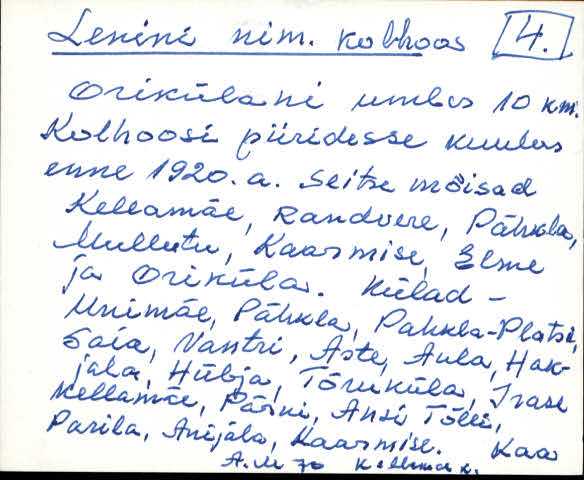 Lenini nim. kolhoos 4.
Oriküla ni umbes 10 km.
Kolhoosi piiridesse kuulus
enne 1920. a. seitse mõisad
Kellamäe, Randvere, Pähkla,
Mullutu, Kaarmise, Elme
ja Oriküla. Külad -
Unimäe, Pähkla, Pahkla-Platsi,
Saia, Vantri, Aste, Aula, Hak-
jala, Hübja, Tõruküla, Irase
Kellamäe, Pärni, Ansi Tõlli,
Parila, Anijala, Kaarmise. Kaa
A. M 70